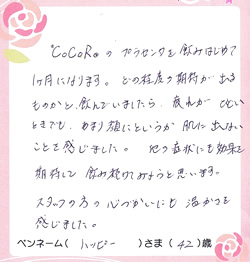 "CoCoRo のプラセンタを飲みはじめて
1ヶ月になります。どの程度の期待が出る
ものかと飲んでいましたら、疲れが ひどい
ときでも、あまり顔にというか 肌に出ない
ことを感じました。 他の症状にも効果を
期待して 飲み続けてみようと思います。
スタッフの方の心づかいにも 温かさを
感じました。
ペンネーム( ハッピー )さま (42)歳